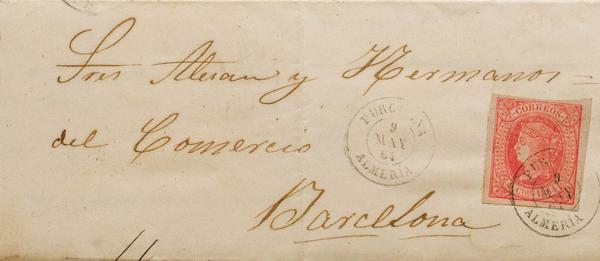 Sres Alesan y Hermanos =
del Comercio
Barcelona
PURCHENA
9
MAY
64
ALMERÍA
CORREOS
4 CUARTOS
9
ALMERÍA